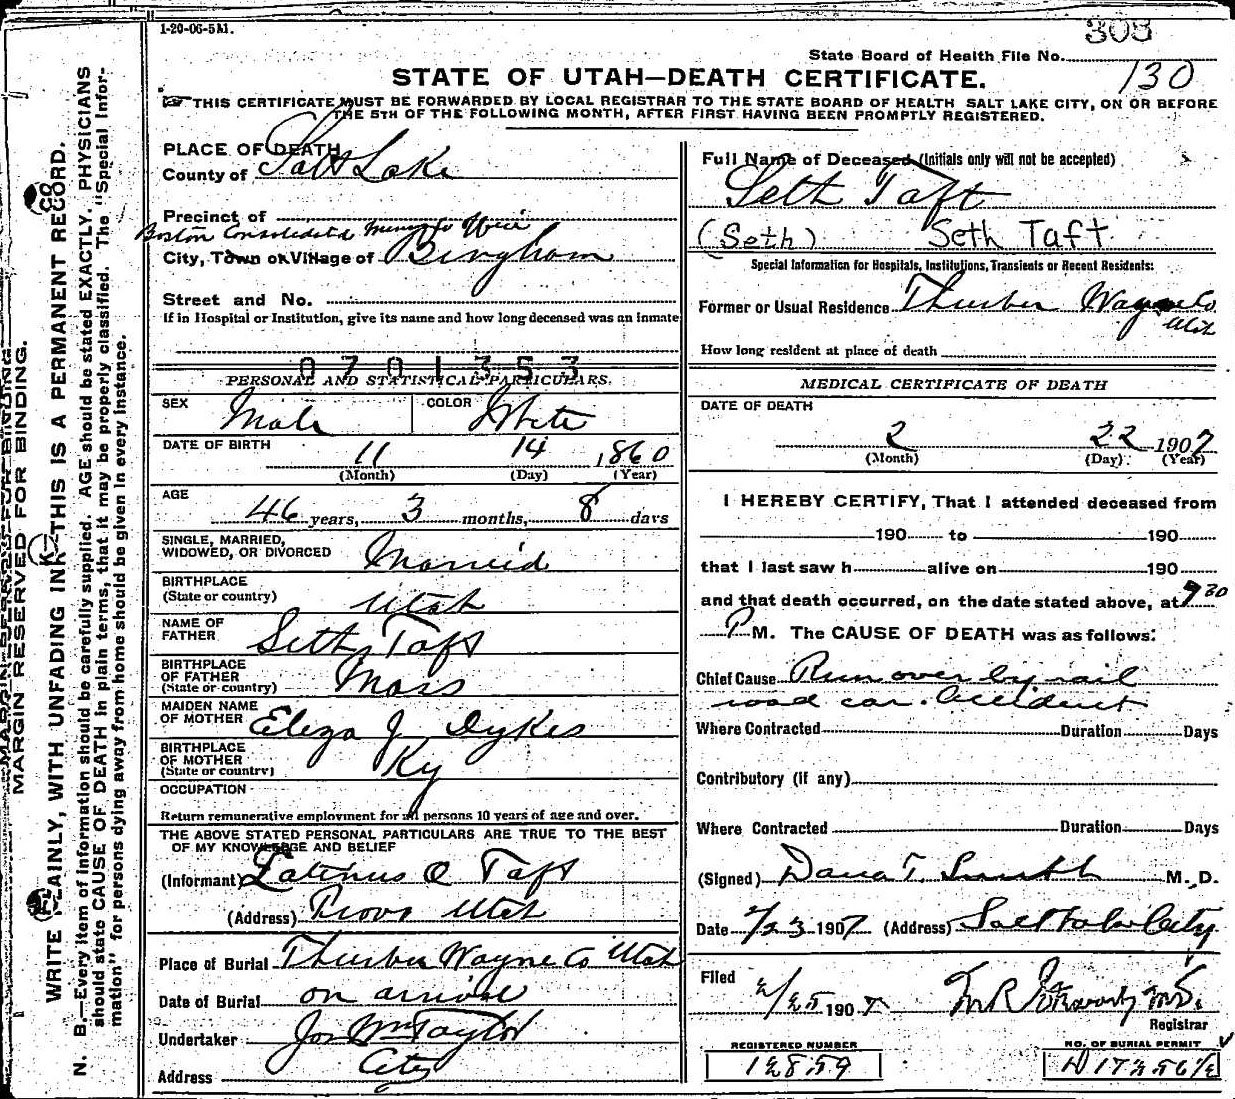 1-20-06-5M.
308
State Board of Health File No.
130
STATE OF UTAH—DEATH CERTIFICATE.
THIS CERTIFICATE MUST BE FORWARDED BY LOCAL REGISTRAR TO THE STATE BOARD OF HEALTH SALT LAKE CITY, ON OR BEFORE
THE 5TH OF THE FOLLOWING MONTH, AFTER FIRST HAVING BEEN PROMPTLY REGISTERED.
MARGIN RESERVED FOR BINDING.
WRITE PLAINLY, WITH UNFADING INK—THIS IS A PERMANENT RECORD.
N. B.—Every item of information should be carefully supplied. AGE should be stated EXACTLY. PHYSICIANS
should state CAUSE OF DEATH in plain terms, that it may be properly classified. The "Special Infor-
mation" for persons dying away from home should be given in every instance.
PLACE OF DEATH
County of Salt Lake
Precinct of
Boston Consolidated
City, Town or Village of Bingham
Street and No.
If in Hospital or Institution, give its name and how long deceased was an inmate
0701353
PERSONAL AND STATISTICAL PARTICULARS.
SEX Male COLOR White
DATE OF BIRTH 11 14 1860
(Month) (Day) (Year)
AGE
46 years, 3 months, 8 days
SINGLE, MARRIED,
WIDOWED, OR DIVORCED Married
BIRTHPLACE
(State or country) Utah
NAME OF
FATHER Seth Taft
BIRTHPLACE
OF FATHER
(State or country) Mass
MAIDEN NAME
OF MOTHER Eliza J Dykes
BIRTHPLACE
OF MOTHER
(State or country) Ky
OCCUPATION
Return remunerative employment for all persons 10 years of age and over.
THE ABOVE STATED PERSONAL PARTICULARS ARE TRUE TO THE BEST
OF MY KNOWLEDGE AND BELIEF
(Informant) Latinus O Taft
(Address) Provo Utah
Place of Burial Thurber Wayne Co Utah
Date of Burial on arrival
Undertaker Jos Wm Taylor
Address City
Full Name of Deceased (Initials only will not be accepted)
Seth Taft
(Seth) Seth Taft
Special Information for Hospitals, Institutions, Transients or Recent Residents:
Former or Usual Residence Thurber Wayne Co
Utah
How long resident at place of death
MEDICAL CERTIFICATE OF DEATH
DATE OF DEATH
2 22 1907
(Month) (Day) (Year)
I HEREBY CERTIFY, That I attended deceased from
190 to 190
that I last saw h alive on 190
and that death occurred, on the date stated above, at 9 30
P M. The CAUSE OF DEATH was as follows:
Chief Cause Run over by rail
road car. Accident
Where Contracted Duration Days
Contributory (if any)
Where Contracted Duration Days
(Signed) Dana T. Smith M. D.
Date 2/23 1907 (Address) Salt Lake City
Filed 2/25 1907 M R M.D.
Registrar
REGISTERED NUMBER
12859
NO. OF BURIAL PERMIT
D 17256 1/2